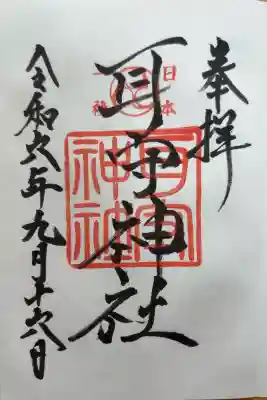 奉拝
日本
一社
耳守神社
耳守
神社
令和六年九月十六日